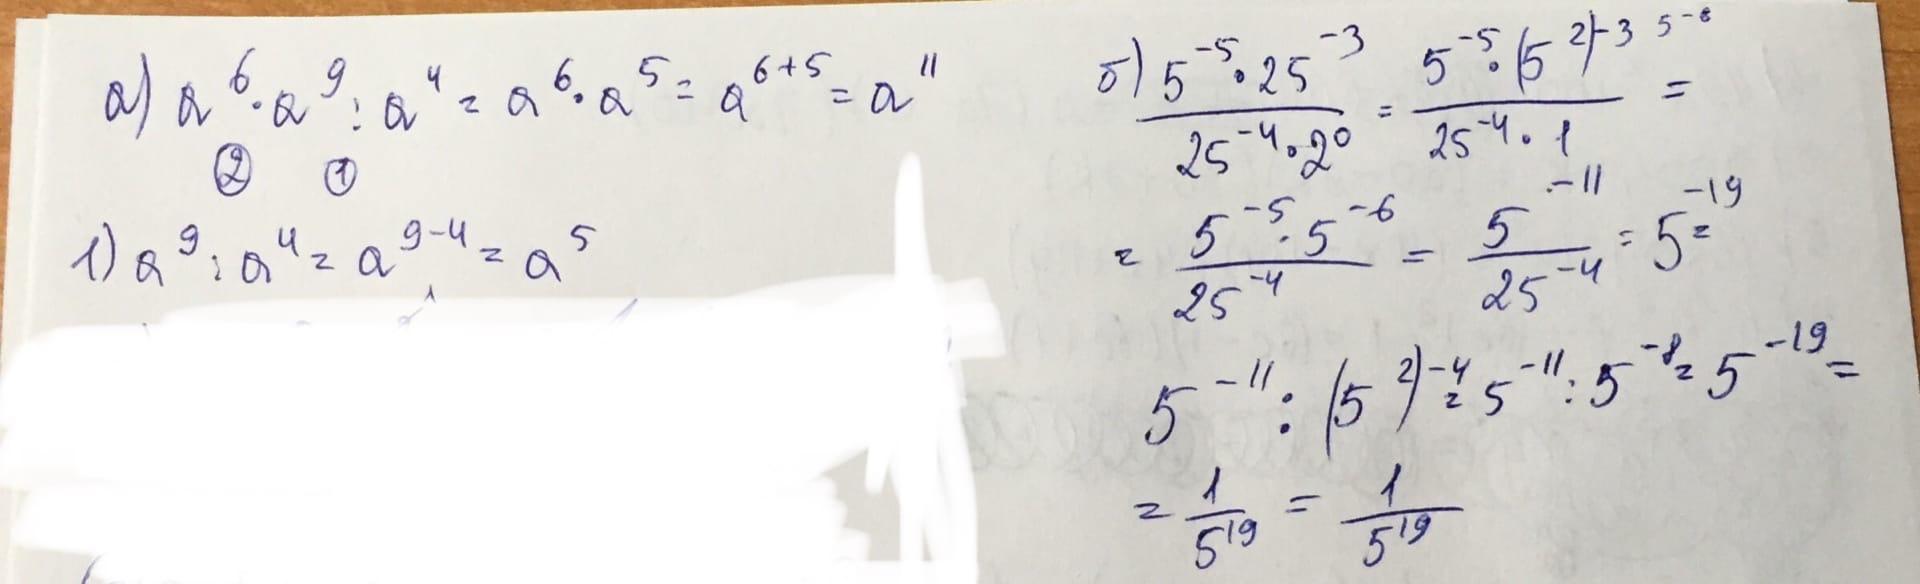 а) a⁶·a⁹:a⁴=a⁶·a⁵=a⁶⁺⁵=a¹¹
② ①
1) a⁹:a⁴=a⁹⁻⁴=a⁵
б) (5⁻⁵·25⁻³)/(25⁻⁴·2⁰)=(5⁻⁵·(5²)⁻³)/(25⁻⁴·1)=
=(5⁻⁵·5⁻⁶)/25⁻⁴=5⁻¹¹/25⁻⁴=5⁻¹⁹=
5⁻¹¹:(5²)⁻⁴=5⁻¹¹:5⁻⁸=5⁻¹⁹=
=1/5¹⁹=1/5¹⁹